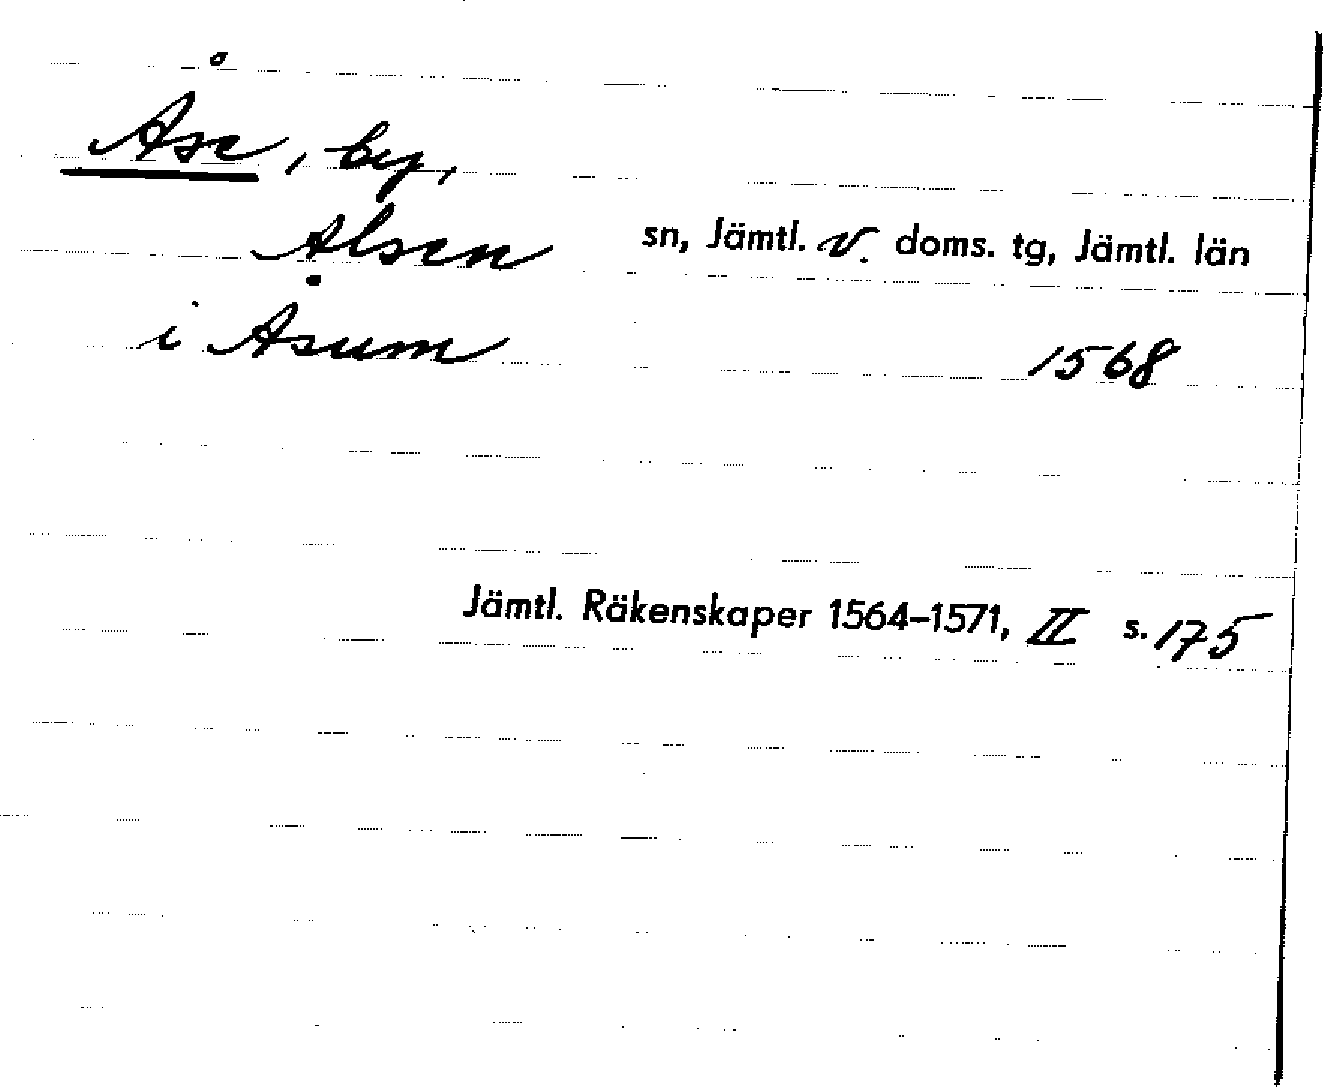 Åse, by,
Alsen sn, Jämtl. v. doms. tg, Jämtl. län
i Åsum 1568
Jämtl. Räkenskaper 1564–1571, II s. 175